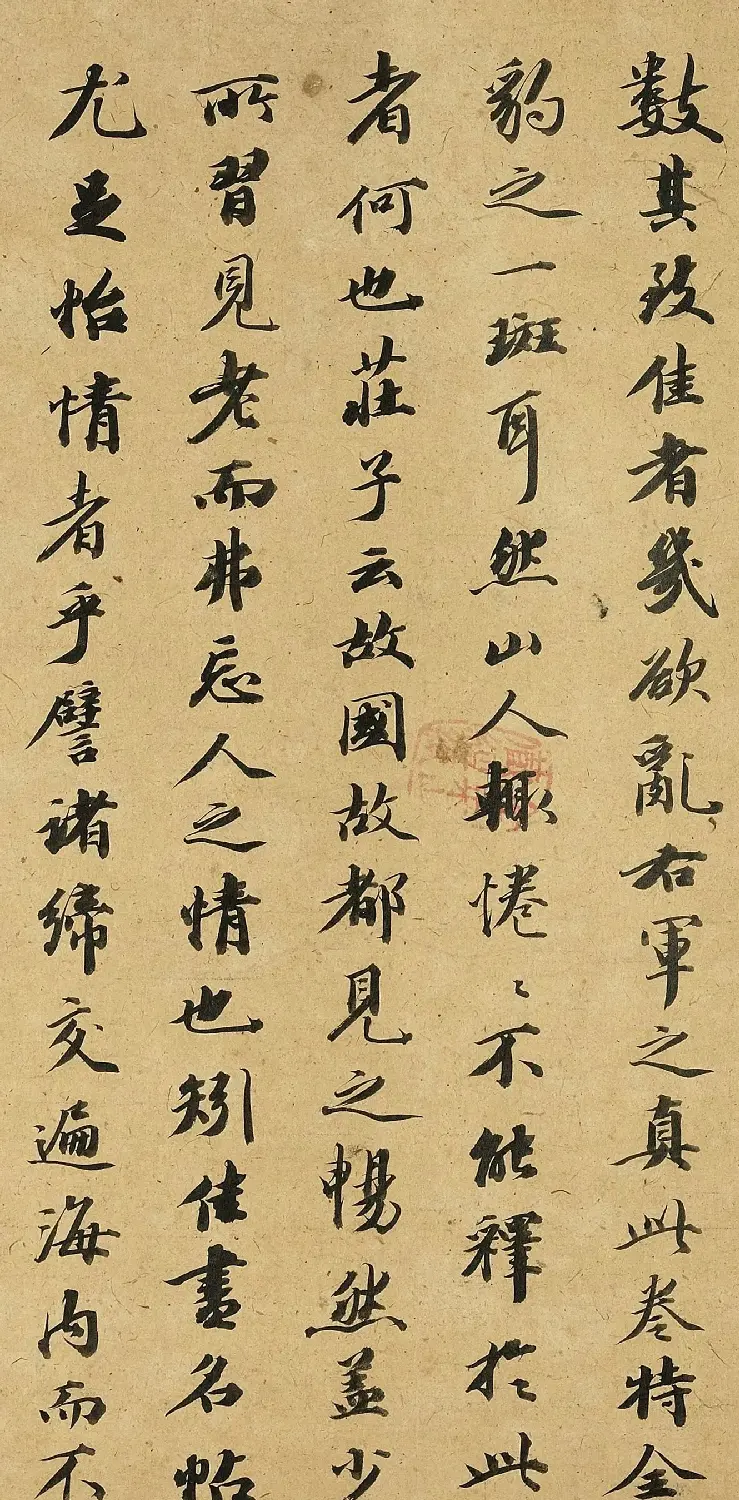 數其致佳者幾欲亂右軍之真此卷特全
豹之一斑耳然山人輒惓〻不能釋於此
者何也莊子云故國故都見之暢然蓋少
所習見老而弗忘人之情也矧佳書名帖
尤足怡情者乎譬諸締交遍海內而不